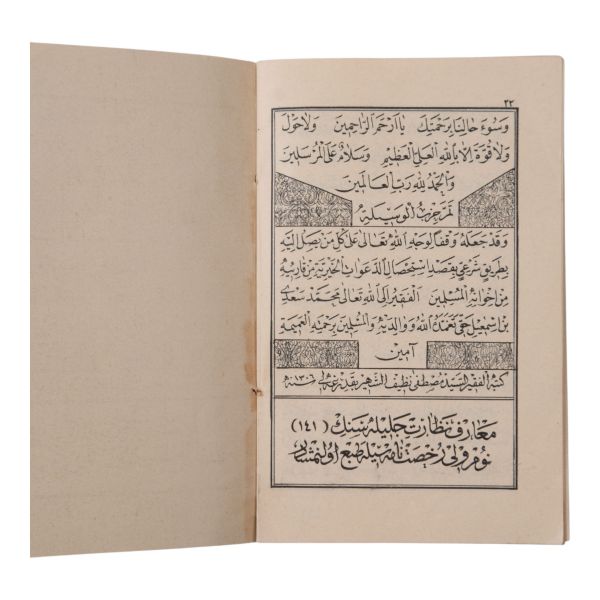 ٢٢
وسوء حالنا برحمتك يا ارحم الراحمين ولا حول
ولا قوة الا بالله العلى العظيم وسلام على المرسلين
والحمد لله رب العالمين
تم حزب الوسيلة
وقد جعله وقفا لوجه الله تعالى على كل من يصل اليه
بطريق شرعى بقصد استحصال الدعوات الخيرية من قارئيه
من اخوانه المسلمين الفقير الى الله تعالى محمد سعدى
بن اسمعيل حقى تغمده الله ووالديه والمسلمين برحمته العميمة
آمين
كتبه الفقير السيد مصطفى نظيف الشهير بقدرغه لى سنة ١٣٠٦
معارف نظارت جليله سنك (١٤١)
نومرولى رخصتنامه سيله طبع اولنمشدر